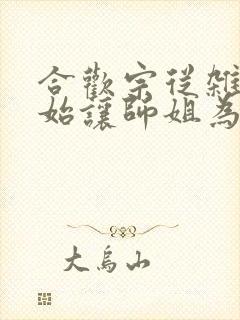 合歡宗從雜
始讓師姐為
大烏山